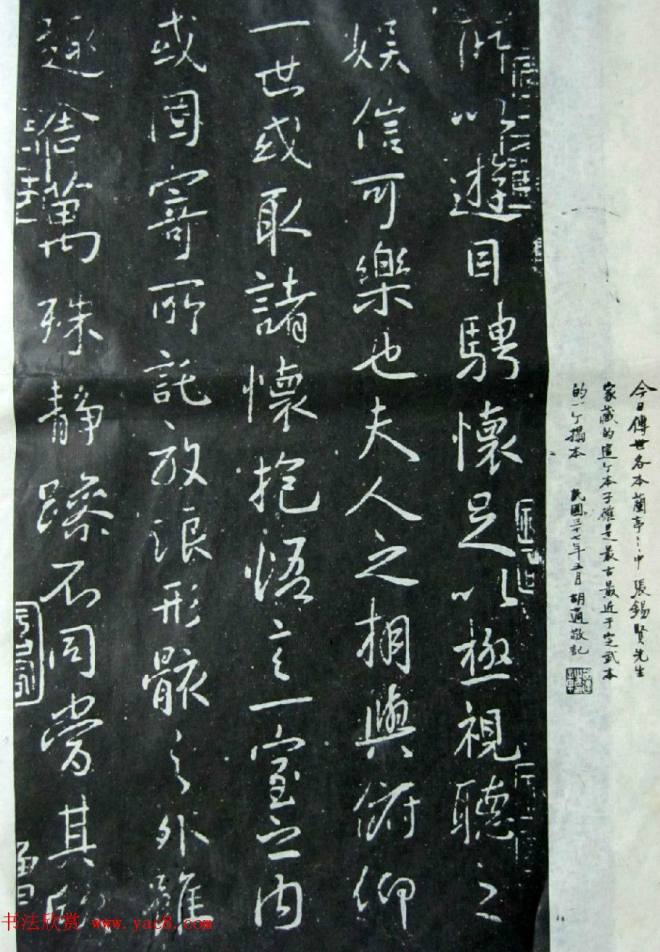 今日傳世各本蘭亭之中張錫賢先生
家藏的這个本子確是最古最近于定武本
的一个搨本 民國三十七年五月 胡適敬記
所以遊目騁懷足以極視聽之
娛信可樂也夫人之相與俯仰
一世或取諸懷抱悟言一室之内
或因寄所託放浪形骸之外雖
趣舍萬殊静躁不同當其欣
书法欣赏 www.yac8.com